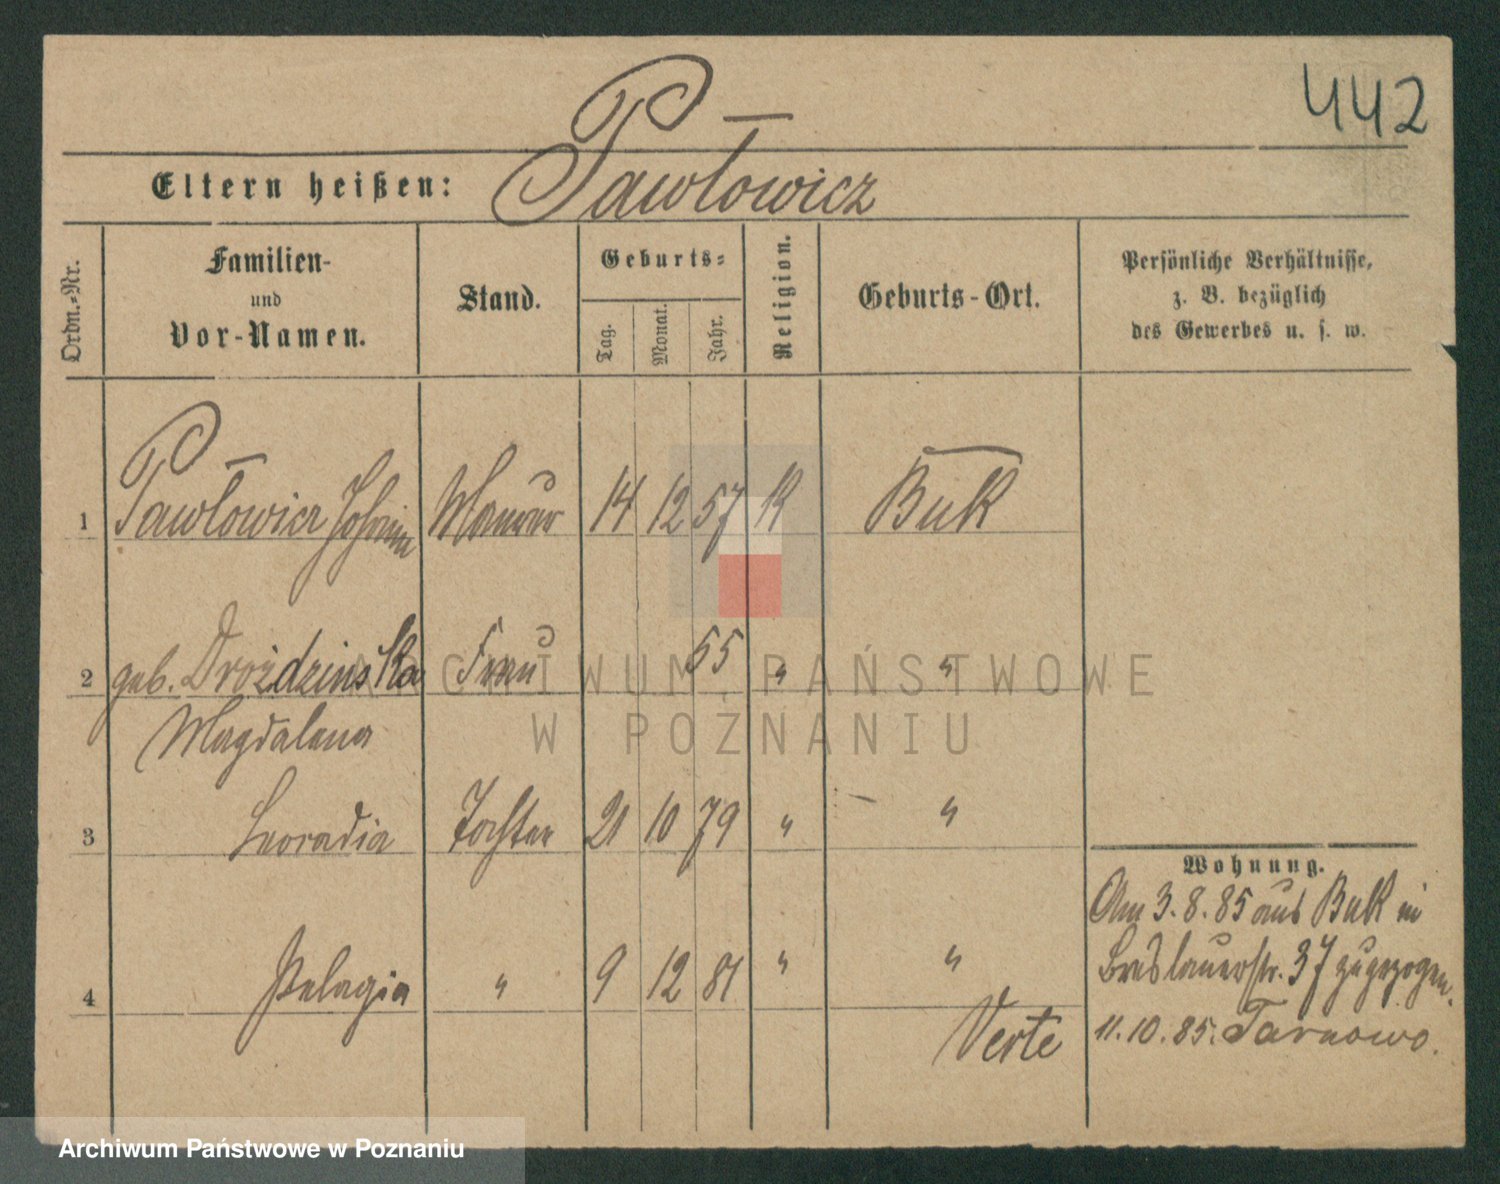 442
Pawłowicz
Eltern heißen:
Ordn.=Nr.
Familien-
und
Vor-Namen.
Stand.
Geburts=
Tag.
Monat.
Jahr.
Religion.
Geburts-Ort.
Persönliche Verhältnisse,
z. B. bezüglich
des Gewerbes u. s. w.
1 Pawłowicz Johann Maurer 14 12 57 K Buk
2 geb. Droździnska Frau 55 " "
Magdalena
3 Leoradia Tochter 21 10 79 " "
4 Pelagia " 9 12 81 " "
Verte
Wohnung.
Am 3.8.85 aus Buk in
Breslauerstr. 37 zugezogen.
11.10.85. Tarnowo.
ARCHIWUM PAŃSTWOWE
W POZNANIU
Archiwum Państwowe w Poznaniu